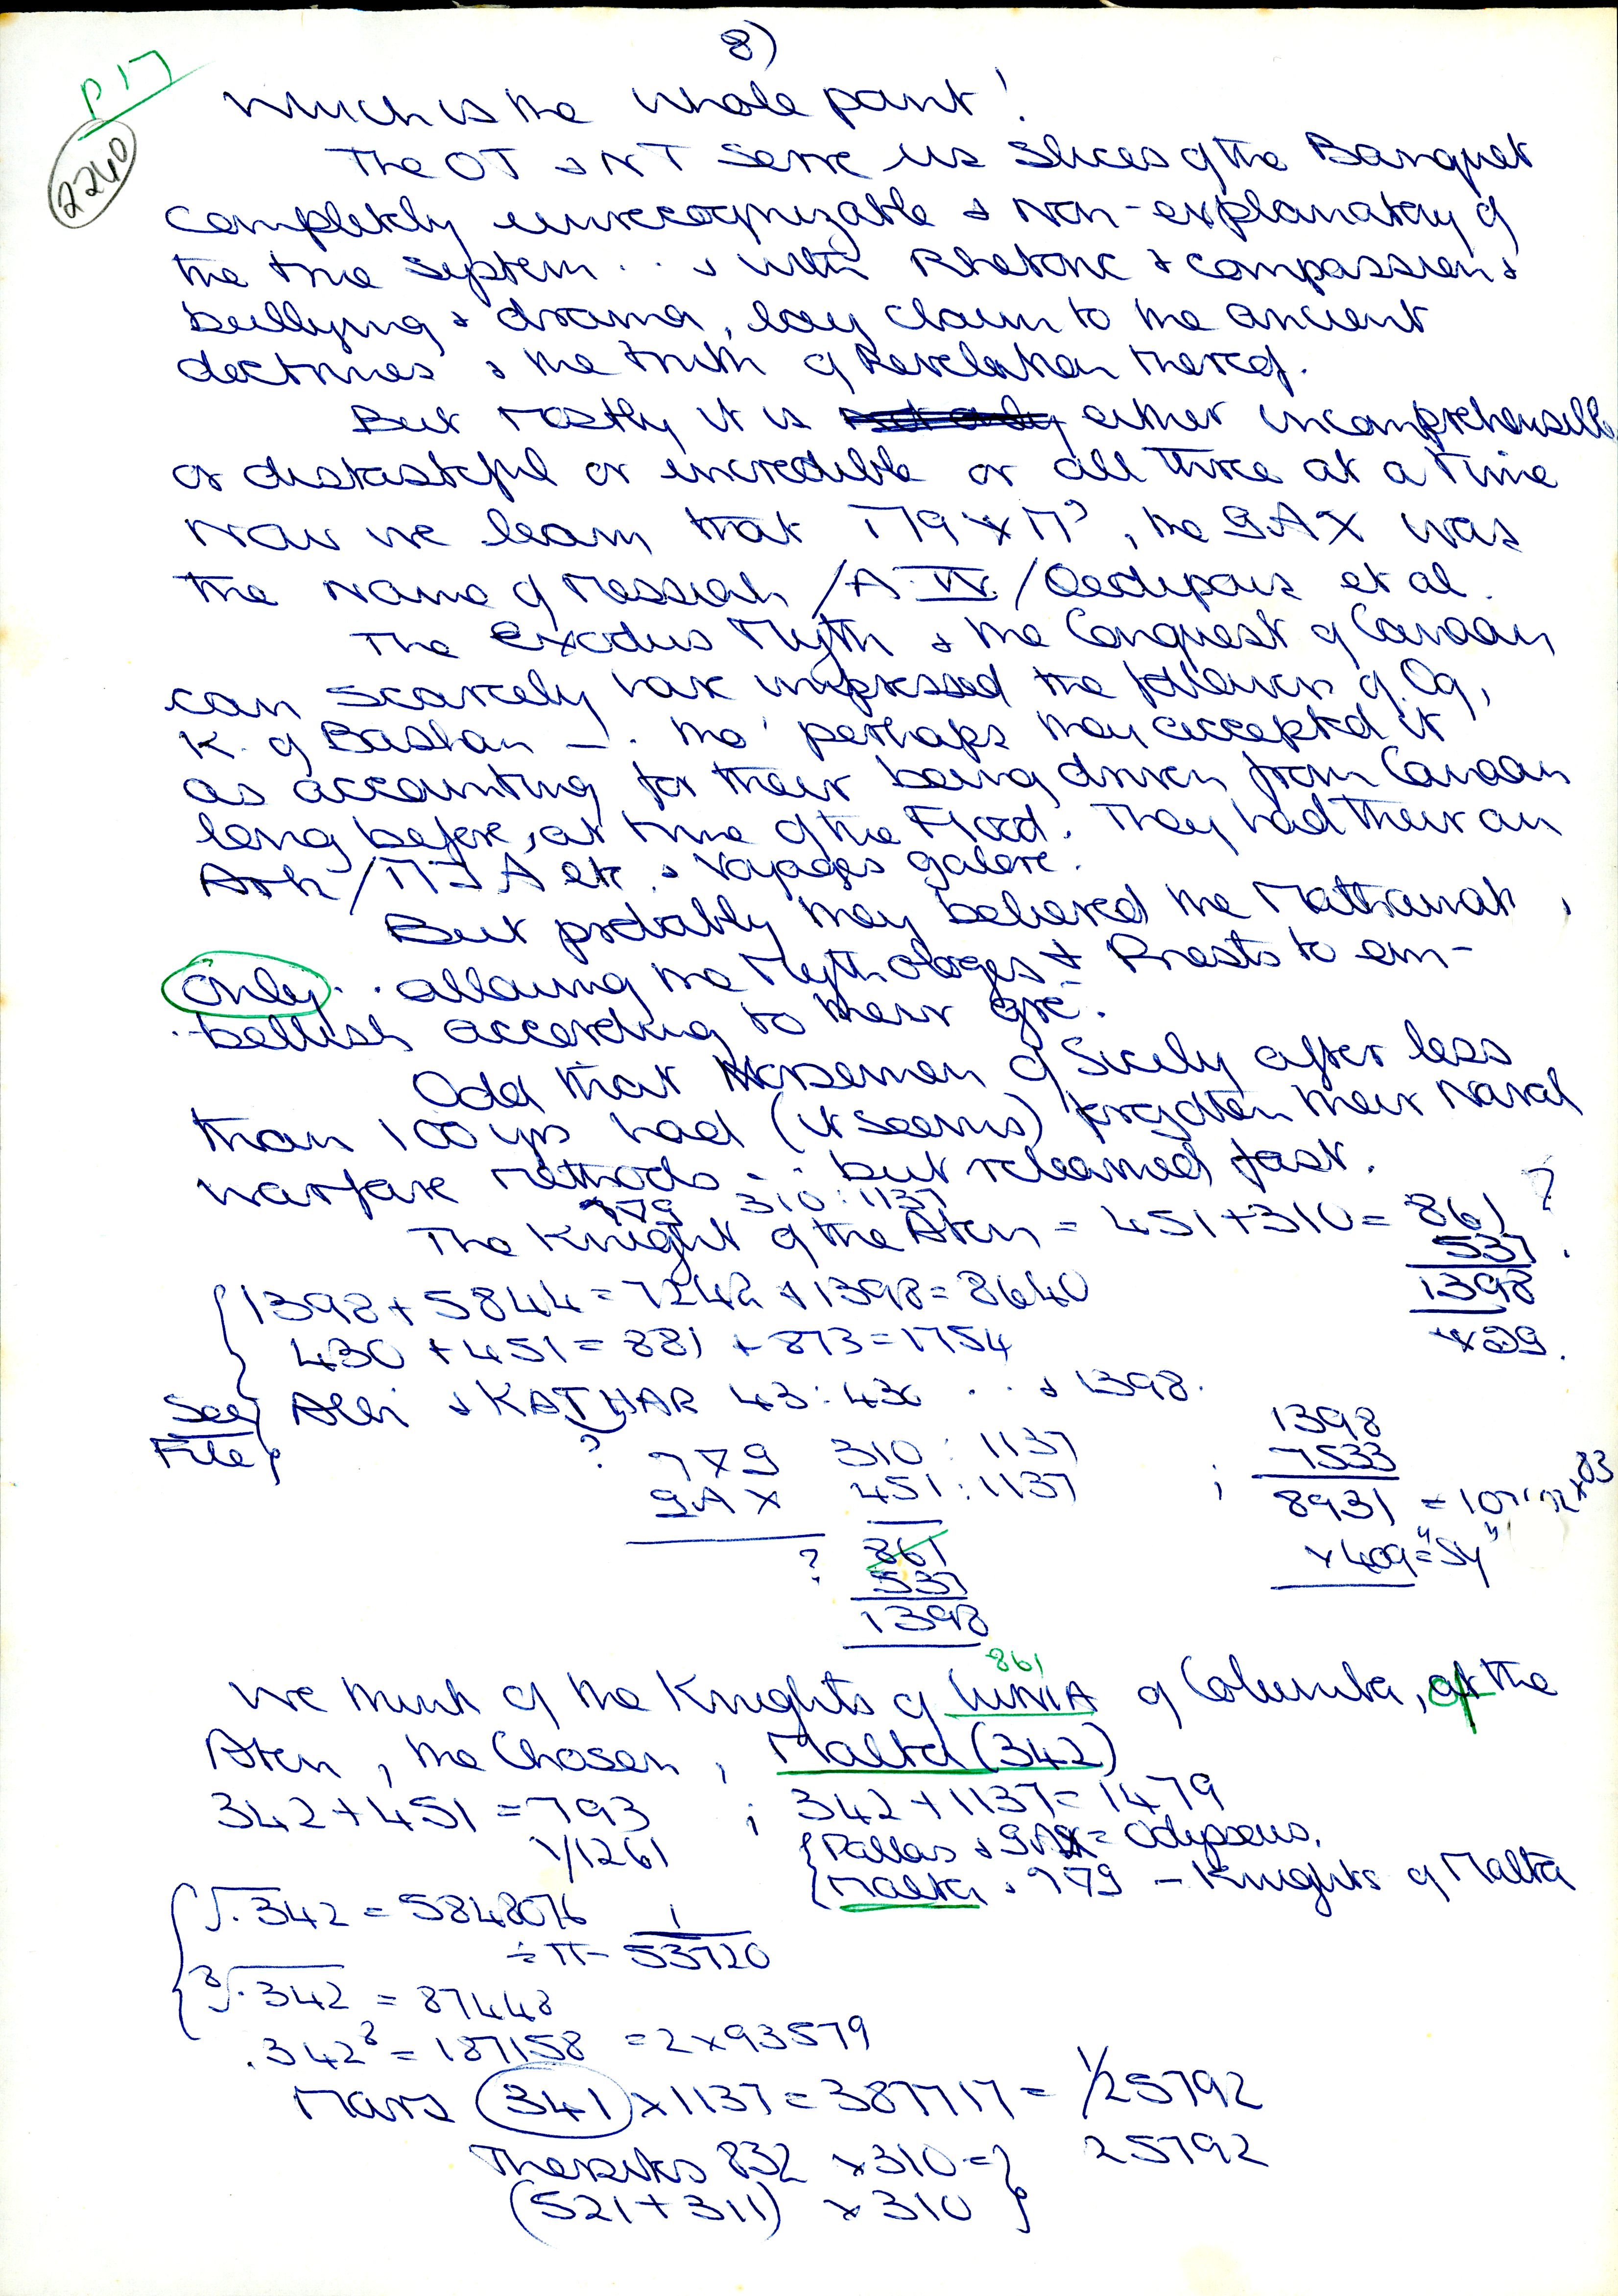 8)
P 17
2240
Which is the whole point!
The OT & NT serve us slices of the Banquet
completely unrecognizable & non-explanatory of
the true system .. & with Rhetoric & compassion &
bullying & drama, lay claim to the ancient
doctrines & the truth of Revelation thereof.
But mostly it is either incomprehensible
or distasteful or incredible or all three at a time
Now we learn that , the 9AX was
the name of Messiah /A.IV./Oedipous et al.
The Exodus Myth & the Conquest of Canaan
can scarcely have impressed the followers of Og,
K. of Bashan —. tho' perhaps they accepted it
as accounting for their being driven from Canaan
long before, at time of the Flood. They had their own
Ark/ etc. & Voyages galore.
But probably they believed the
only .. allowing the Mythologes & Priests to em-
bellish according to their gré.
Odd that Norsemen of Sicily after less
than 100 yrs had (it seems) forgotten their naval
warfare methods .. but relearned fast.
979 310:1137
The Knight of the Aten = 451+310= 861 ?
537
1398
x 29.
1398+5844=7242+1398=8640
430+451=881+873=1754
See File Albi & KATHAR 43:430 .. & 1398.
?
9X9 310:1137
9AX 451:1137
? 861
537
1398
1398
; 7533
8931 = 
x409="Sy"
861
We think of the Knights of of Columba, of the
Aten, the Chosen, Malta (342)
342+451=793 ; 342+1137=1479
1/1261 {Pallas & 9AX= Odysseus.
{Malta & 979 – Knights of Malta
√.342 = 5848076
÷π– 1/53720
³√.342 = 87448
.342⁸=187158 =2x93579
Mars 341x1137=387717= 1/25792
Thersites 832 x310=} 25792
(521+311) x310 }